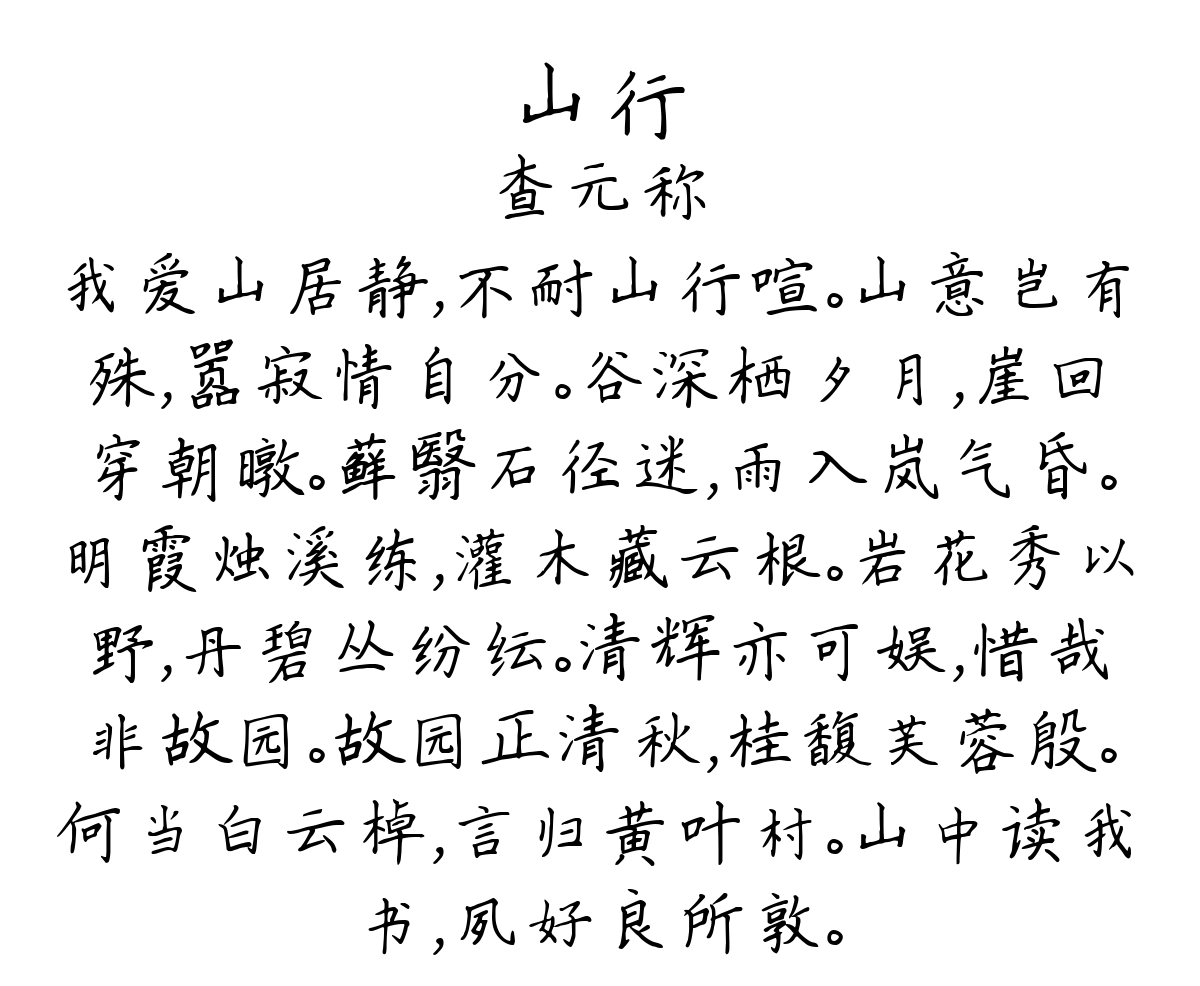 山行
查元称
我爱山居静,不耐山行喧。山意岂有
殊,嚣寂情自分。谷深栖夕月,崖回
穿朝暾。藓翳石径迷,雨入岚气昏。
明霞烛溪练,灌木藏云根。岩花秀以
野,丹碧丛纷纭。清辉亦可娱,惜哉
非故园。故园正清秋,桂馥芙蓉殷。
何当白云棹,言归黄叶村。山中读我
书,夙好良所敦。